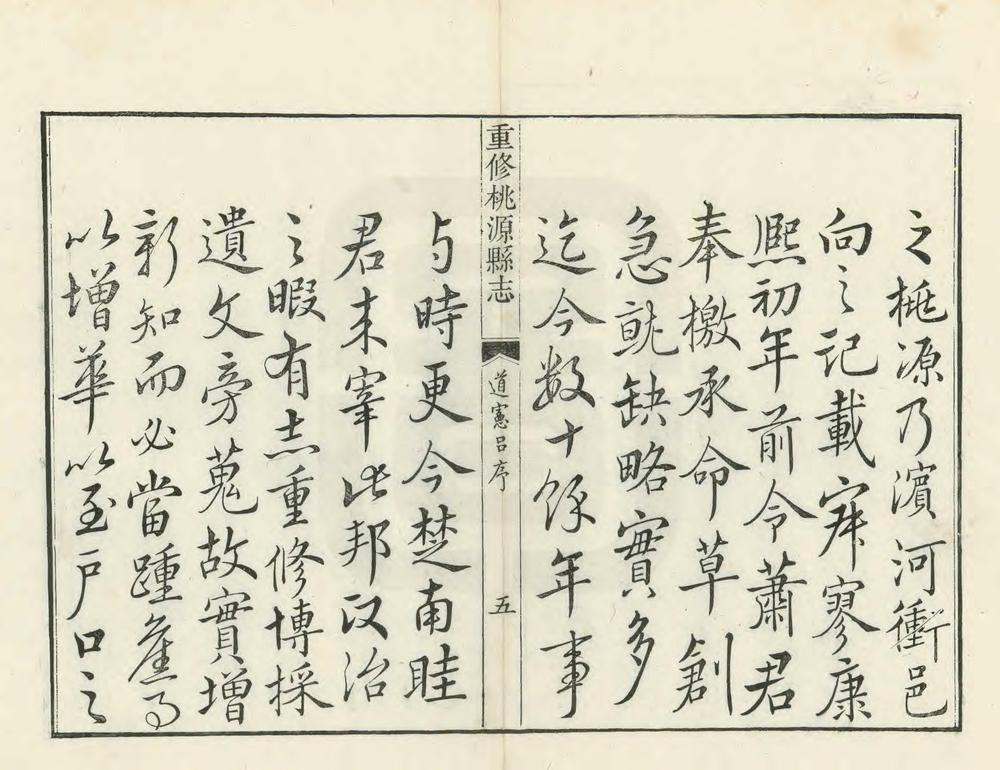 之桃源乃濱河衝邑
向之記載寂寥康
熈初年前令蕭君
奉檄承命草創
急就缺略實多
迄今数十餘年事
重修桃源縣志
道憲吕序
五
与時更今楚南眭
君来宰此邦政治
之暇有志重修博採
遺文旁蒐故實增
新知而必當踵舊事
以增華以至戸口之